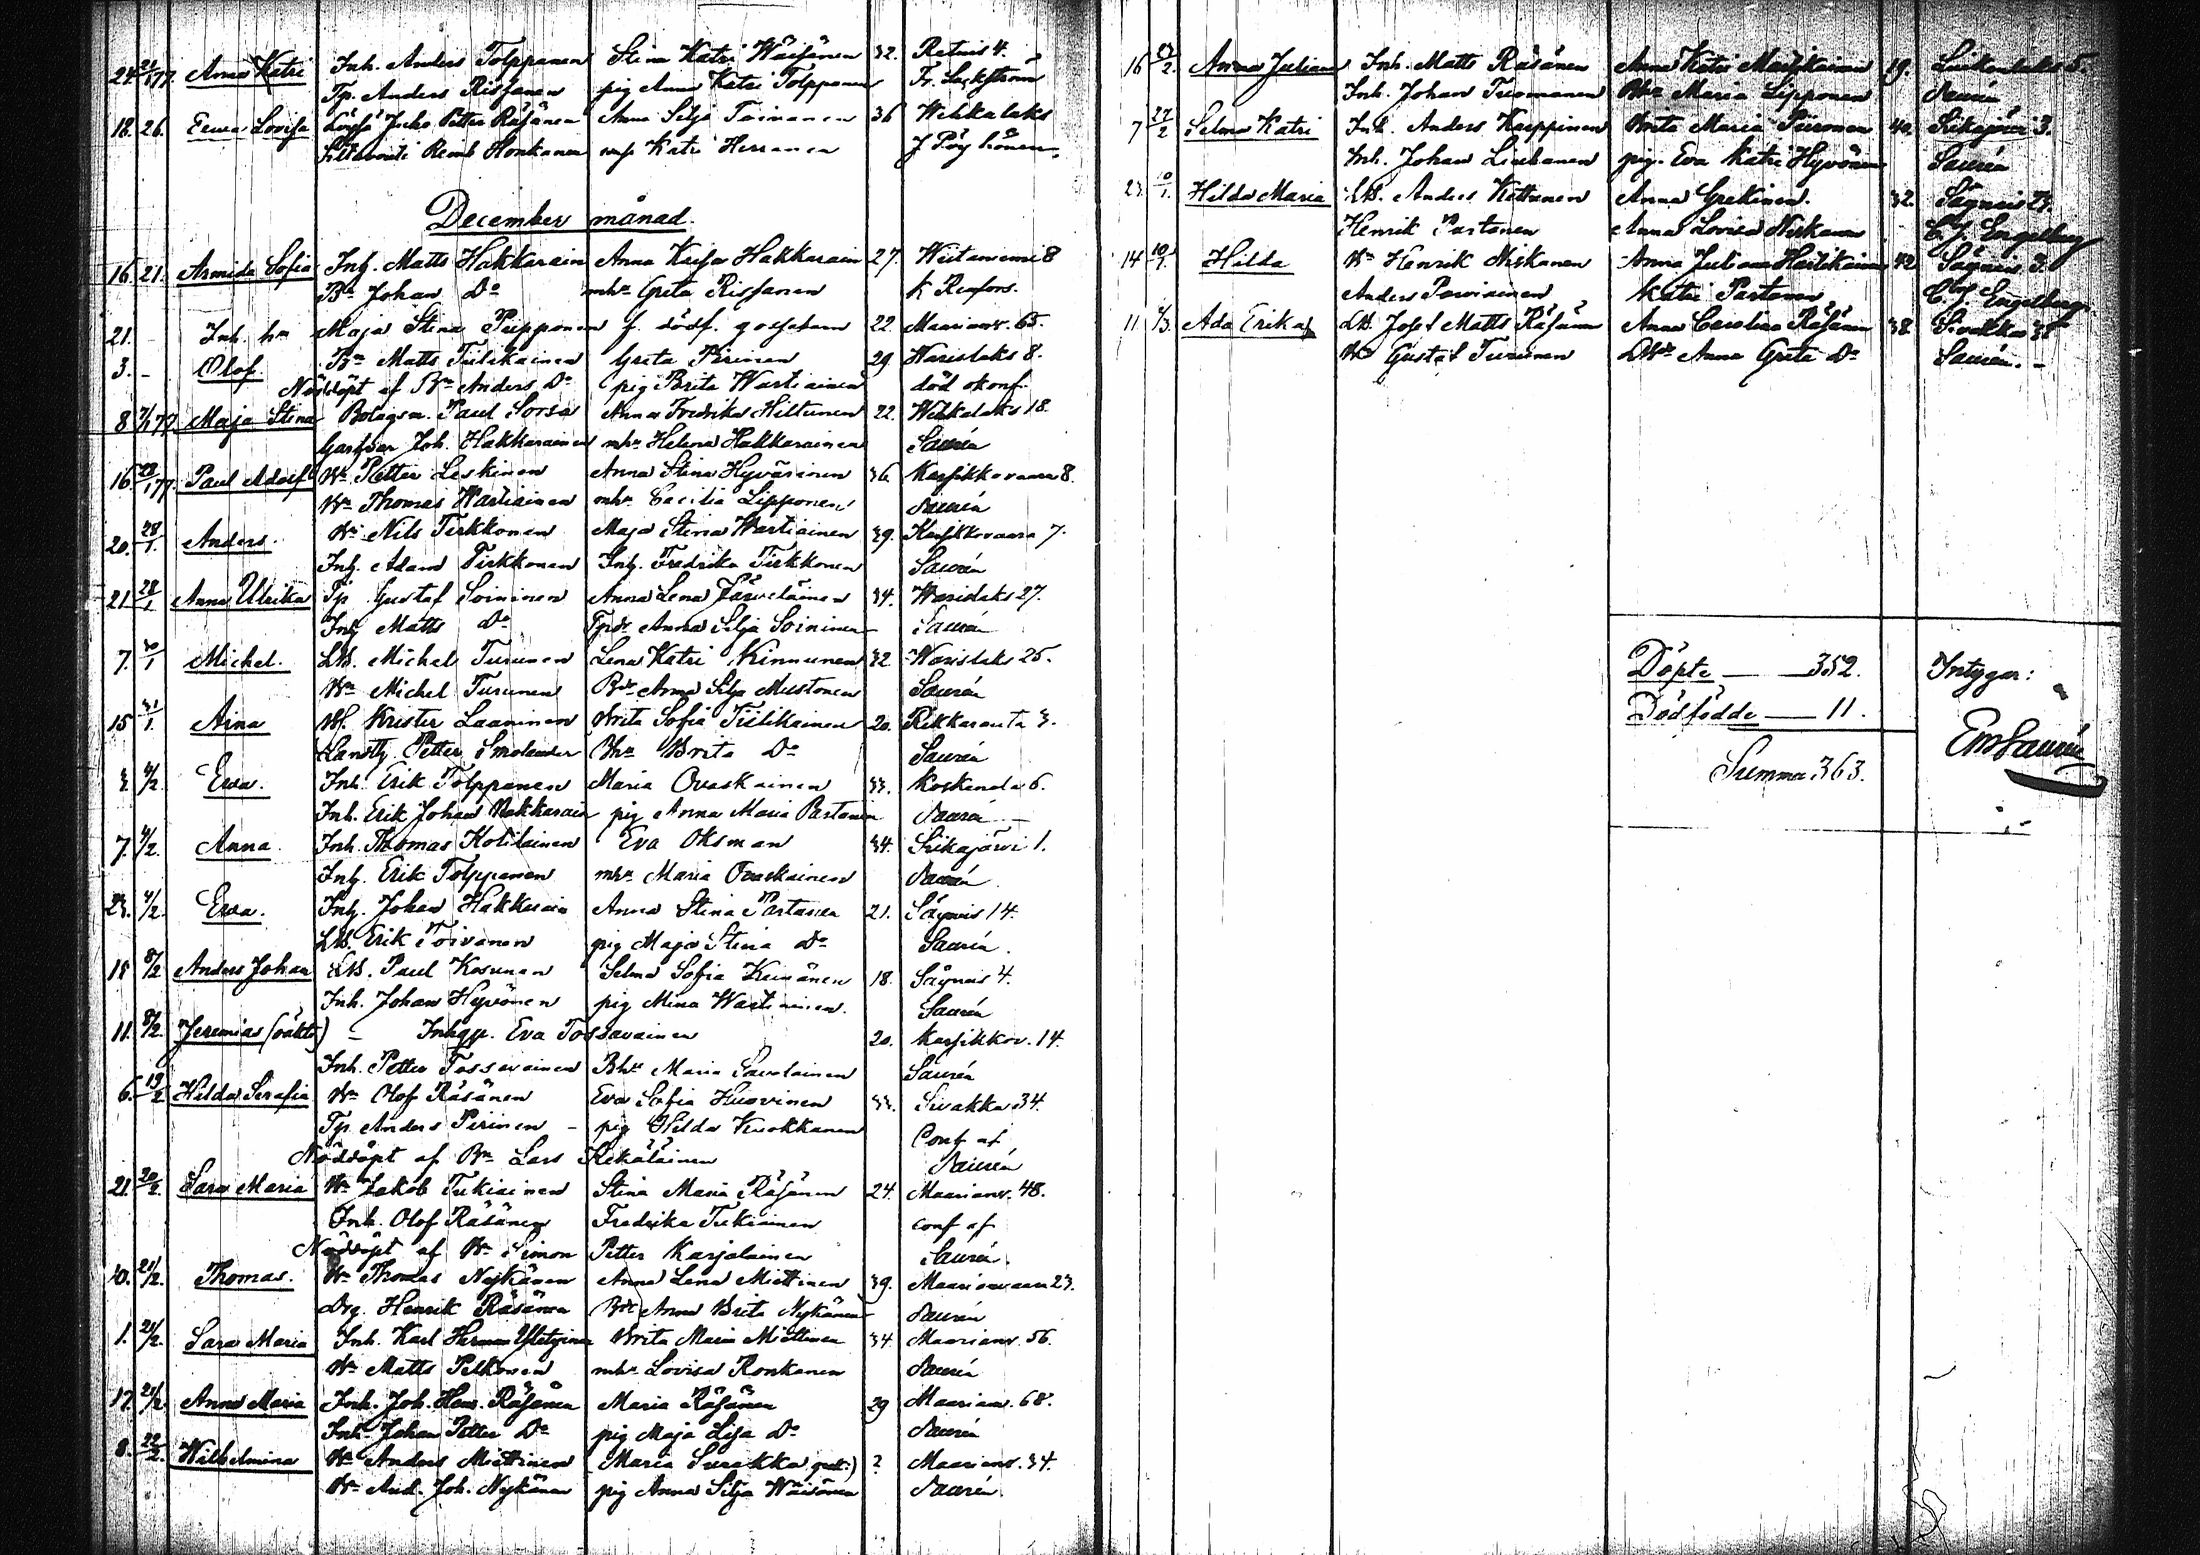 24 21/1 77. Anna Katri Inh. Anders Tolppanen Stina Katri Wäisänen 32. Retuis 4.
Tp. Anders Rissanen pig Anna Katri Tolppanen Fr. Luckström
18. 26. Erwa Lovisa Juho Petter Räsänen Anna Silja Toivanen 36 Wehkalaks
Honkanen Katri Herranen J Pöyhönen
December månad.
16. 21. Armida Sofia Inh. Matts Hakkarain Anna Kaisa Hakkarain 27. Wiitaniemi 8
Bn Johan Do mhu Greta Rissanen K Renfors.
21. Inh. hu Maja Stina Piipponen f. dödf. gossebarn 22. Maarianv. 65.
3. - Olof. Bn Matts Tiilikainen Greta Pirinen 29. Warislaks 8.
Nöddöpt af Bn Anders Do pig Brita Wartiainen död okonf.
8 7/1 77 Maja Stina Bolagsm. Paul Sorsa Anna Fredrika Hiltunen 22. Wehkalaks 18.
Garfvar Joh. Hakkarainen mhu Helena Hakkarainen Saurén
16. 28/1 77. Paul Adolf Bn Petter Leskinen Anna Stina Hyvärinen 36. Karsikkovaara 8.
Bn Thomas Wartiainen mhu Cecilia Lipponen Saurén
20. 28/1. Anders. Bn Nils Tirkkonen Maja Stina Wartiainen 39. Karsikkovaara 7.
Inh. Adam Tirkkonen Inh. Fredrika Tirkkonen Saurén
21. 28/1 Anna Ulrika Tp Gustaf Soininen Anna Lena Järveläinen 34. Warislaks 27.
Inh Matts Do Anna Silja Soininen Saurén
7. 30/1 Michel. LB. Michel Turunen Lena Katri Kinnunen 32 Warislaks 25.
Bn Michel Turunen Anna Silja Mustonen Saurén
15 31/1. Aina LB. Krister Laaninen Brita Sofia Tiilikainen 20. Rikkaranta 3.
Petter Smolander Bhu Brita Do Saurén
3 4/2. Ewa. Inh. Erik Tolppanen Maria Ovaskainen 33. Koskenala 6.
Inh. Erik Johan Hakkarain pig Anna Maria Partanen Saurén
7. 4/2. Anna. Inh. Thomas Kotilainen Eva Oksman 34. Siikajärvi 1.
Inh. Erik Tolppanen mhu Maria Ovaskainen Saurén
23. 4/2. Ewa. Inh. Johan Hakkarain Anna Stina Partanen 21. Säyneis 14.
LB. Erik Toivanen pig Maja Stina Do Saurén.
18 8/2 Anders Johan LB. Paul Kosunen Selma Sofia Keinänen 18. Säyneis 4.
Inh. Johan Hyvönen pig Mina Wartiainen. Saurén
11. 8/2. Jeremias (oäkta) - Inhys. Eva Tossavainen 20. Karsikkov. 14.
Inh. Petter Tossavainen Bhu Maria Savolainen Saurén
6. 19/2 Hilda Serafia Bn Olof Räsänen Eva Sofia Huovinen 33. Sivakka 34.
Tp. Anders Pirinen - pig Hilda Kuokkanen Conf af
Nöddöpt af Bn Lars Rekäläinen Saurén
21. 20/2. Sara Maria Bn Jakob Tukiainen Stina Maria Räsänen 24. Maarianv. 48.
Inh. Olof Räsänen Fredrika Tukiainen conf af
Nöddöpt af Bn Simon Petter Karjalainen Saurén.
10. 21/2. Thomas. Bn Thomas Nykänen Anna Lena Miettinen 39. Maarianvaara 23.
Drg. Henrik Räsänen Anna Brita Nykänen Saurén
1. 21/2. Sara Maria Inh. Karl Herman Brita Maria Miettinen 34 Maarianv. 56.
Bn Matts Pelkonen mhu Lovisa Ronkanen Saurén
17. 21/2. Anna Maria Inh. Joh. Henr. Räsänen Maria Räsänen 29 Maarianv. 68.
Inh. Johan Petter Do pig Maja Lisa Do Saurén
8. 22/2. Wilhelmina Bn Anders Miettinen Maria Surakka ? Maarianv. 34.
Bn And. Joh. Nykänen pig Anna Silja Wäisänen Saurén.
16 23/2. Anna Juliana Inh. Matts Räsänen Anna Katri 19. 5.
Inh. Johan Tuomanen Maria Lipponen Saurén
7 27/2 Selma Katri Inh. Anders Karppinen Brita Maria Piironen 40. Siikajärvi 3.
Inh. Johan Liuhanen pig. Eva Katri Hyvönen Saurén
Hilda Maria LB. Anders Kettunen Anna Grekinen. 32. Säyneis 23.
Henrik Partanen Anna Lovisa Niskanen C. J. Engelberg
14 Hilda Bn Henrik Niskanen Anna Juliana Hartikainen 42 Säyneis 3.
Anders Parviainen Katri Partanen C. J. Engelberg
11 4/3. Ada Erika LB. Josef Matts Räsänen Anna Carolina Räsänen 38 Sivakka
Bn Gustaf Turunen Anna Greta Do Saurén. -
Döpte — 352. Intygar:
Dödfödde — 11.
EmSaurén
Summa 363.